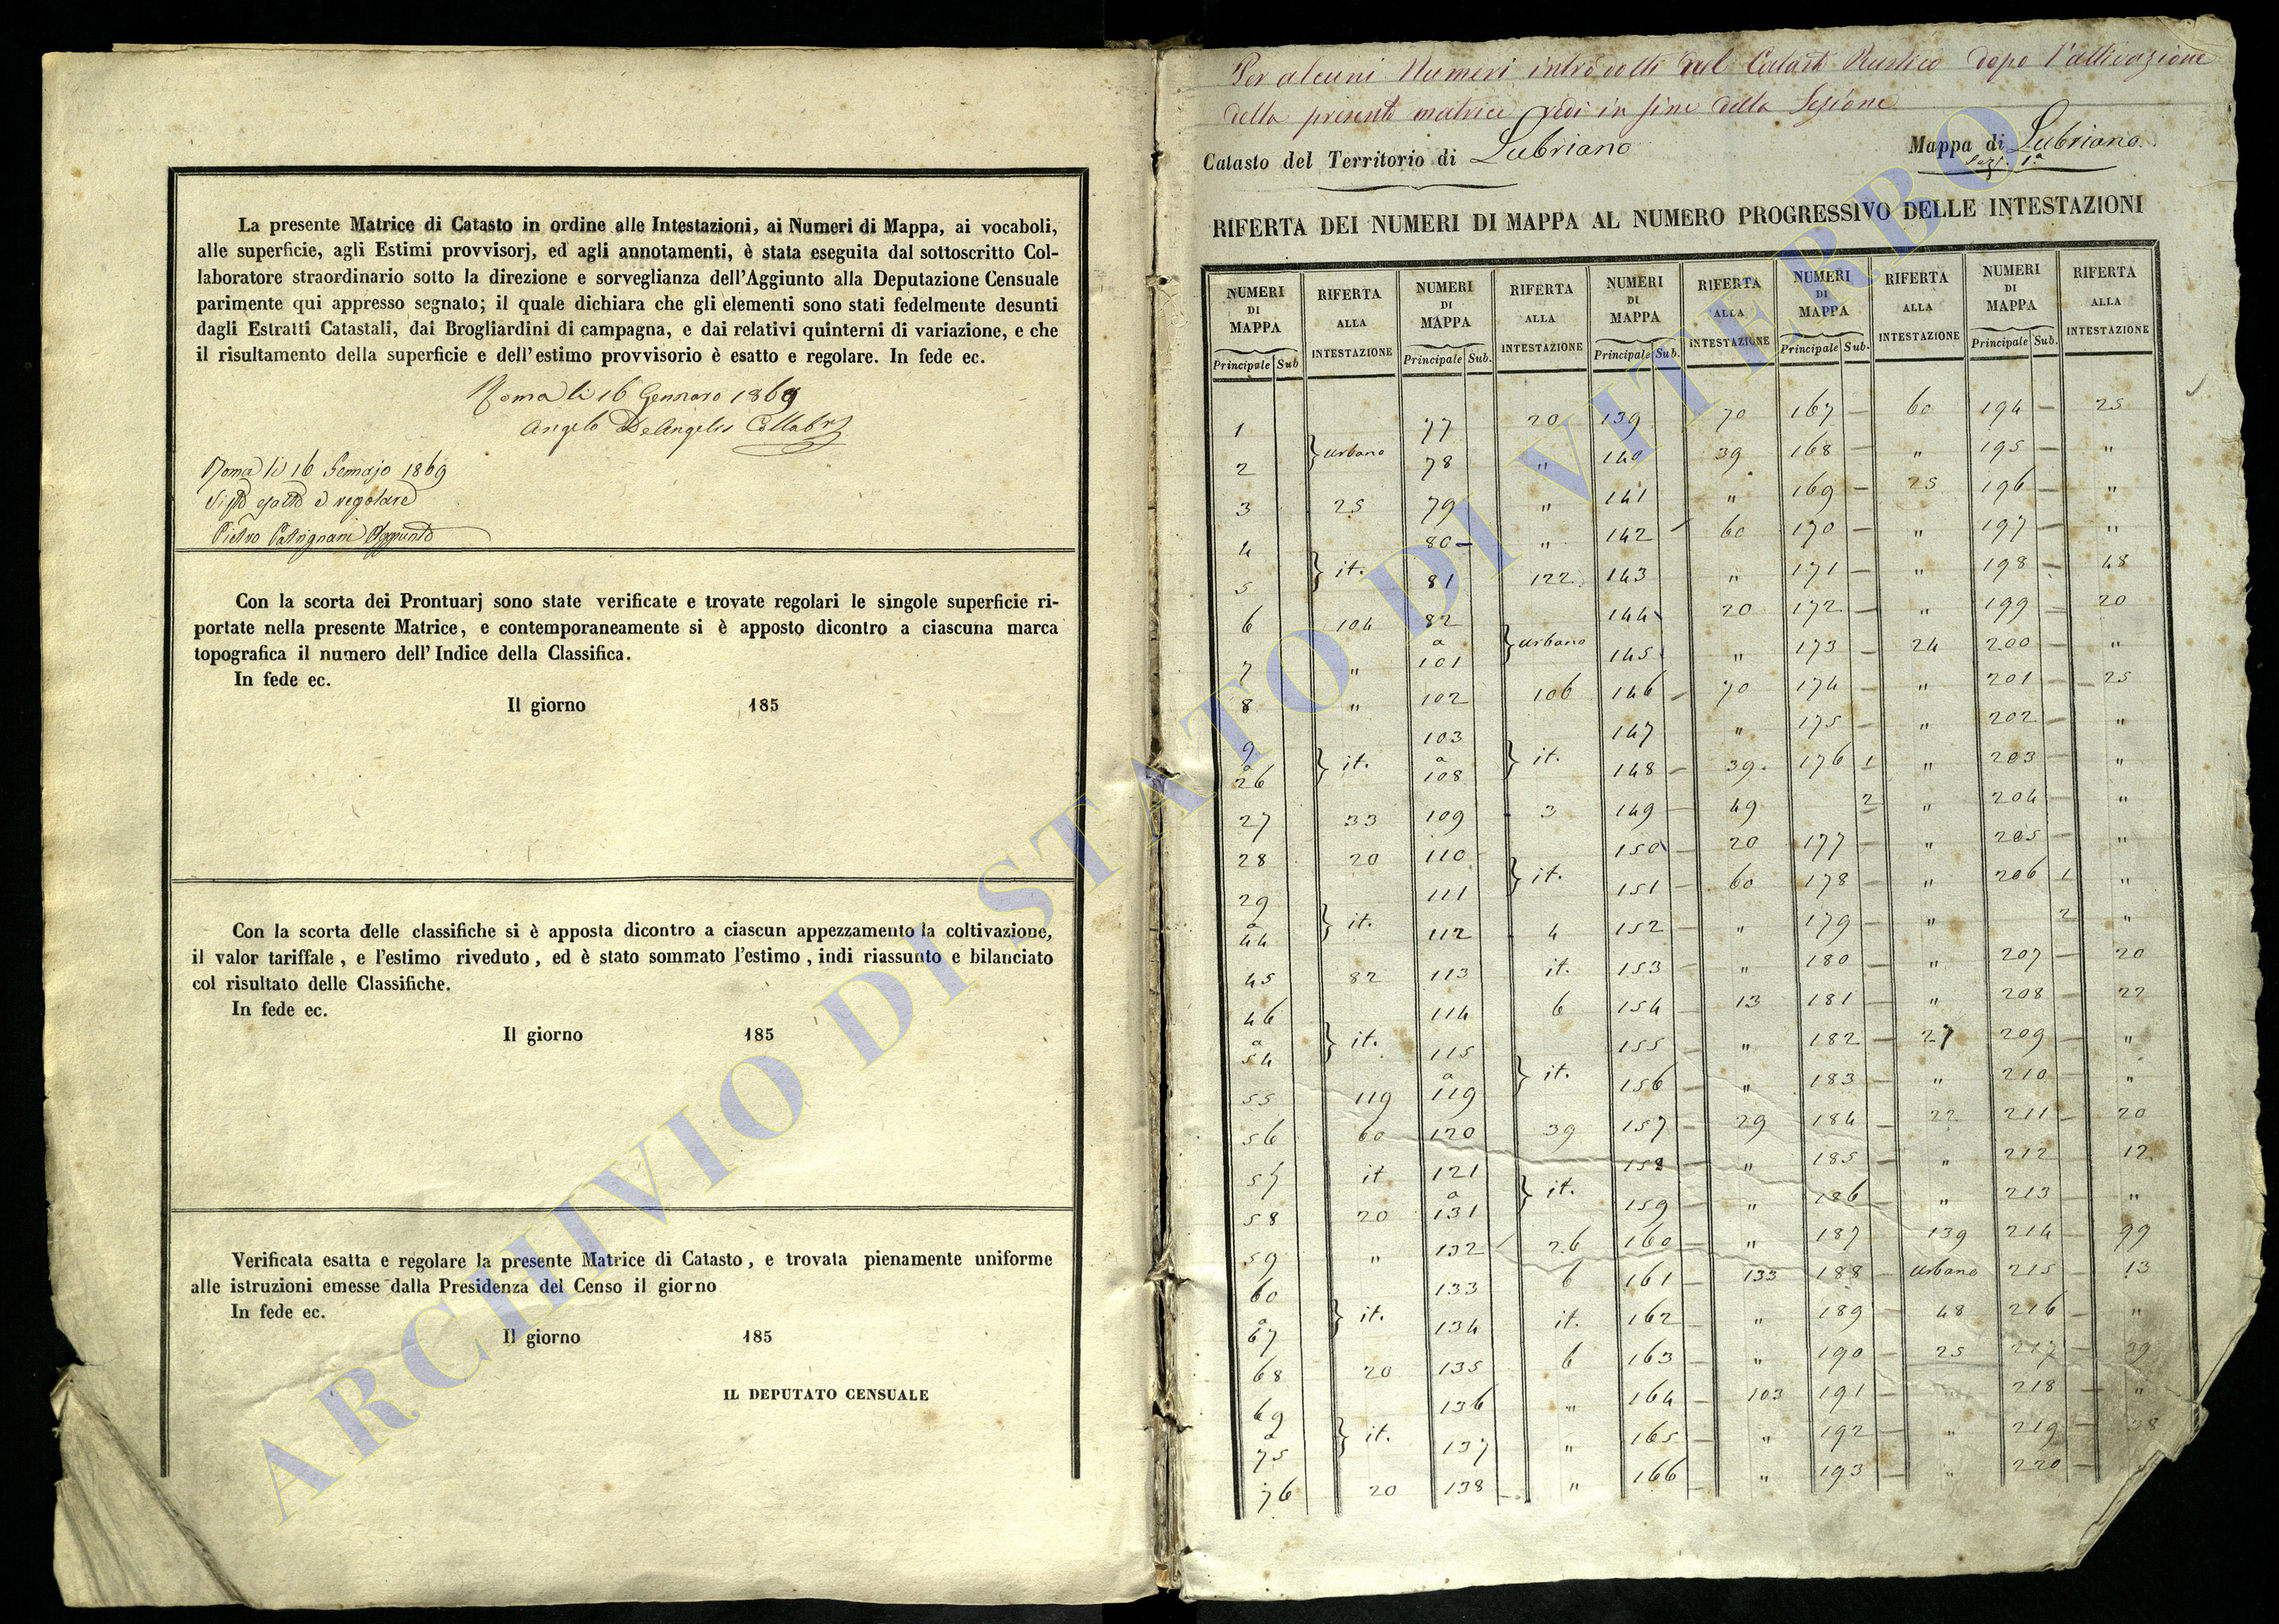 La presente Matrice di Catasto in ordine alle Intestazioni, ai Numeri di Mappa, ai vocaboli,
alle superficie, agli Estimi provvisorj, ed agli annotamenti, è stata eseguita dal sottoscritto Col-
laboratore straordinario sotto la direzione e sorveglianza dell'Aggiunto alla Deputazione Censuale
parimente qui appresso segnato; il quale dichiara che gli elementi sono stati fedelmente desunti
dagli Estratti Catastali, dai Brogliardini di campagna, e dai relativi quinterni di variazione, e che
il risultamento della superficie e dell'estimo provvisorio è esatto e regolare. In fede ec.
Roma li 16 Gennaro 1869
Angelo DeAngelis Collabre
Roma li 16 Gennajo 1869
Visto esatto e regolare
Pietro Patrignani Aggiunto
Con la scorta dei Prontuarj sono state verificate e trovate regolari le singole superficie ri-
portate nella presente Matrice, e contemporaneamente si è apposto dicontro a ciascuna marca
topografica il numero dell'Indice della Classifica.
In fede ec.
Il giorno 185
Con la scorta delle classifiche si è apposta dicontro a ciascun appezzamento la coltivazione,
il valor tariffale, e l'estimo riveduto, ed è stato sommato l'estimo, indi riassunto e bilanciato
col risultato delle Classifiche.
In fede ec.
Il giorno 185
Verificata esatta e regolare la presente Matrice di Catasto, e trovata pienamente uniforme
alle istruzioni emesse dalla Presidenza del Censo il giorno
In fede ec.
Il giorno 185
IL DEPUTATO CENSUALE
Per alcuni Numeri introdotti nel Catasto Rustico dopo l'attivazione
della presente matrice vedi in fine della Sezione
Catasto del Territorio di Lubriano
Mappa di Lubriano
Sez. 1.a
RIFERTA DEI NUMERI DI MAPPA AL NUMERO PROGRESSIVO DELLE INTESTAZIONI
NUMERI DI MAPPA RIFERTA ALLA INTESTAZIONE NUMERI DI MAPPA RIFERTA ALLA INTESTAZIONE NUMERI DI MAPPA RIFERTA ALLA INTESTAZIONE NUMERI DI MAPPA RIFERTA ALLA INTESTAZIONE NUMERI DI MAPPA RIFERTA ALLA INTESTAZIONE
Principale Sub Principale Sub. Principale Sub. Principale Sub. Principale Sub.
1 77 20 139 70 167 — 60 194 — 25
2 } urbano 78 " 140 39 168 — " 195 — "
3 25 79 " 141 " 169 — 25 196 — "
4 80 — " 142 60 170 — " 197 — "
5 } it. 81 122 143 " 171 — " 198 — 48
6 104 82 144 20 172 — " 199 — 20
7 " a 101 } urbano 145 " 173 — 24 200 — "
8 " 102 106 146 — 70 174 — " 201 — 25
9 103 147 " 175 — " 202 — "
a 26 } it. a 108 } it. 148 — 39 176 1 " 203 — "
27 33 109 3 149 — 49 2 " 204 — "
28 20 110 150 — 20 177 — " 205 — "
29 111 } it. 151 — 60 178 — " 206 1 "
a 44 } it. 112 4 152 — " 179 — " 2 "
45 82 113 it. 153 — " 180 — " 207 — 20
46 114 6 154 — 13 181 — " 208 — 22
a 54 } it. 115 155 — " 182 — 27 209 — "
55 119 a 119 } it. 156 — " 183 — " 210 — "
56 60 120 39 157 — 29 184 — 22 211 — 20
57 it 121 158 — " 185 — " 212 — 12
58 20 a 131 } it. 159 — " 186 — " 213 — "
59 " 132 26 160 — " 187 139 214 — 99
60 133 6 161 — 133 188 — urbano 215 — 13
a 67 } it. 134 it. 162 — " 189 — 48 216 — "
68 20 135 6 163 — " 190 — 25 217 — 39
69 136 " 164 — 103 191 — 218 — "
a 75 } it. 137 " 165 — " 192 — " 219 —
76 20 138 — " 166 — " 193 — " 220 —
ARCHIVIO DI STATO DI VITERBO